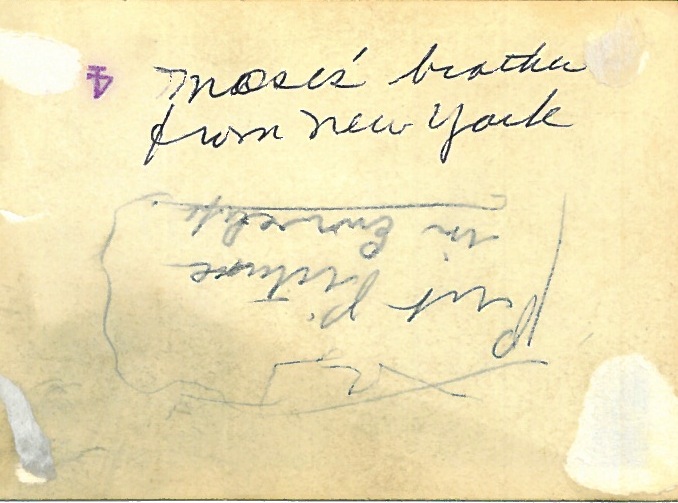 4
Moses' brother
from New York
Put Picture
in Envelope